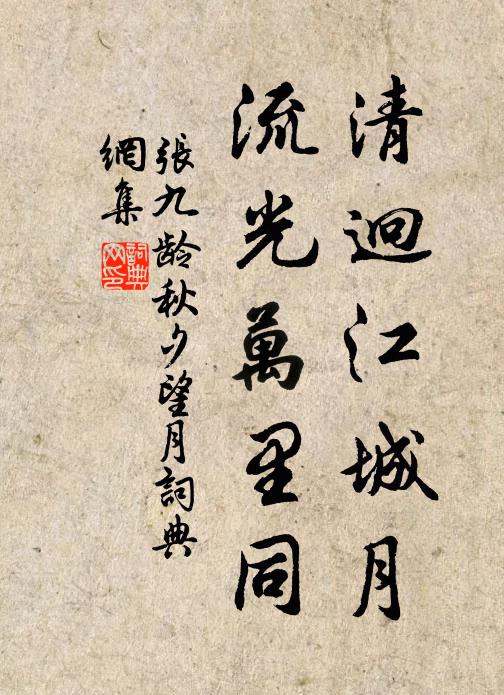 清迥江城月
流光萬里同
張九龄秋夕望月詞典
網集
詞典
网印